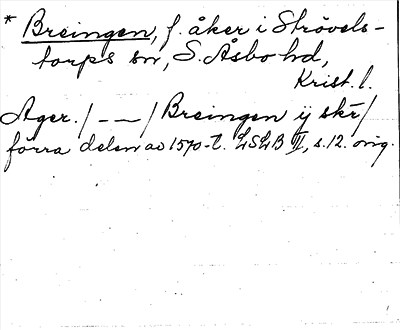 * Breingen, f. åker i Strövels-
torps sn, S. Åsbo hd,
Krist. l.
Ager. / - - - / Breingen ij skr /
förra delen av 1570-t. LSLB III, s. 12. orig.